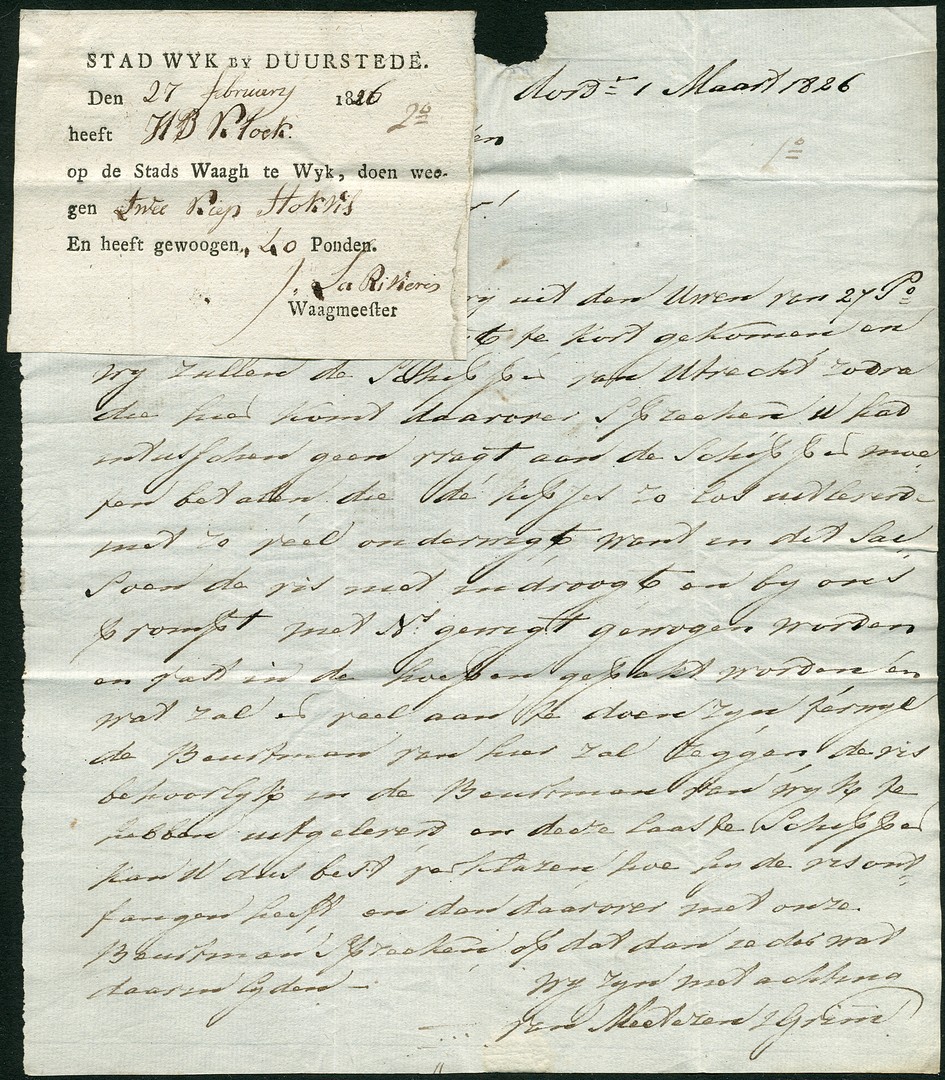 STAD WYK BY DUURSTEDE.
Den 27 february 1826
heeft HB Klock. 2=
op de Stads Waagh te Wyk, doen wee-
gen twee kiep Stokvis
En heeft gewoogen, 40 Ponden.
Waagmeester
1 Maart 1826
en
uit den Uwen van 27 Po
te kort gekomen en
wy zullen de Schipper van Utrecht zodra
die hier komt daarover Spreeken U had
intusschen geen vragt aan de Schipper moe
ten betalen die de kipjes zo los uitleverd
met zo veel onderwigt want in dit Sai
Soen de vis niet indroogt en by ons
prompt met Ns gewigt gewogen worden
en vast in de hoepen gepakt worden en
wat zal er veel aan te doen zyn terwyl
de Beurtman van hier zal zeggen de vis
behoorlyk in de Beurtman van wyk te
hebben uitgeleverd en deeze laaste Schipper
kan U dus best verklaren hoe hy de vis ont
fangen heeft en dan daarover met onze
Beurtman Spreeken, of dat dan ieder wat
daarin lyden - wy zyn met achting
van Meeteren & Grim